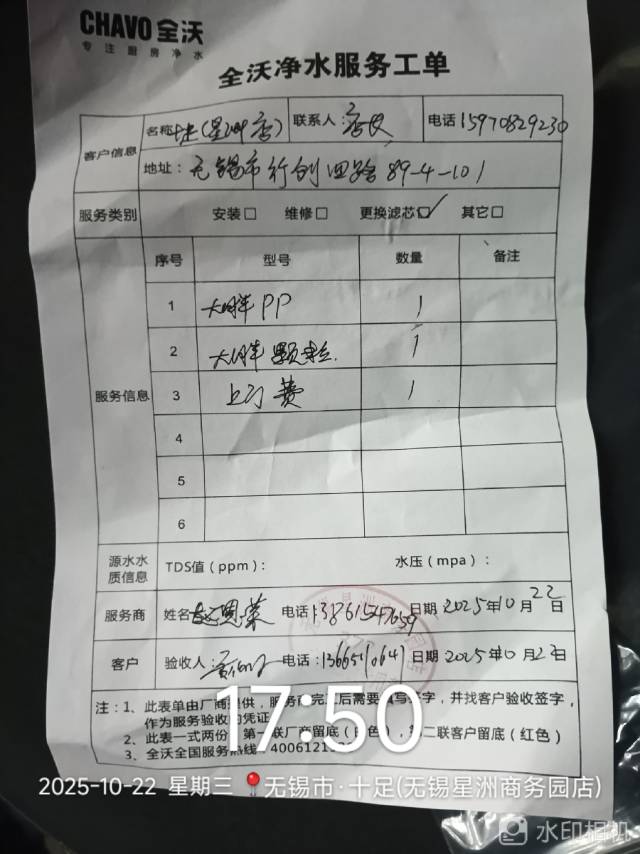 CHAVO 全沃
专注厨房净水
全沃净水服务工单
客户信息
名称 (星洲店) 联系人: 店长 电话 15970829230
地址: 无锡市行创四路89-4-101
服务类别 安装□ 维修□ 更换滤芯☑ 其它□
服务信息
序号 型号 数量 备注
1 大胖PP 1
2 大胖颗粒 1
3 上门费 1
4
5
6
源水水质信息 TDS值(ppm): 水压(mpa):
服务商 姓名 电话: 日期 2025年10月22日
客户 验收人: 电话: 日期 2025年10月22日
注:1、此表单由厂商提供,服务完后需要填写签字,并找客户验收签字,
作为服务验收的凭证
2、此表一式两份,第一联厂商留底(白色),第二联客户留底(红色)
3、全沃全国服务热线:4006121
17:50
2025-10-22 星期三 无锡市·十足(无锡星洲商务园店)
水印相机